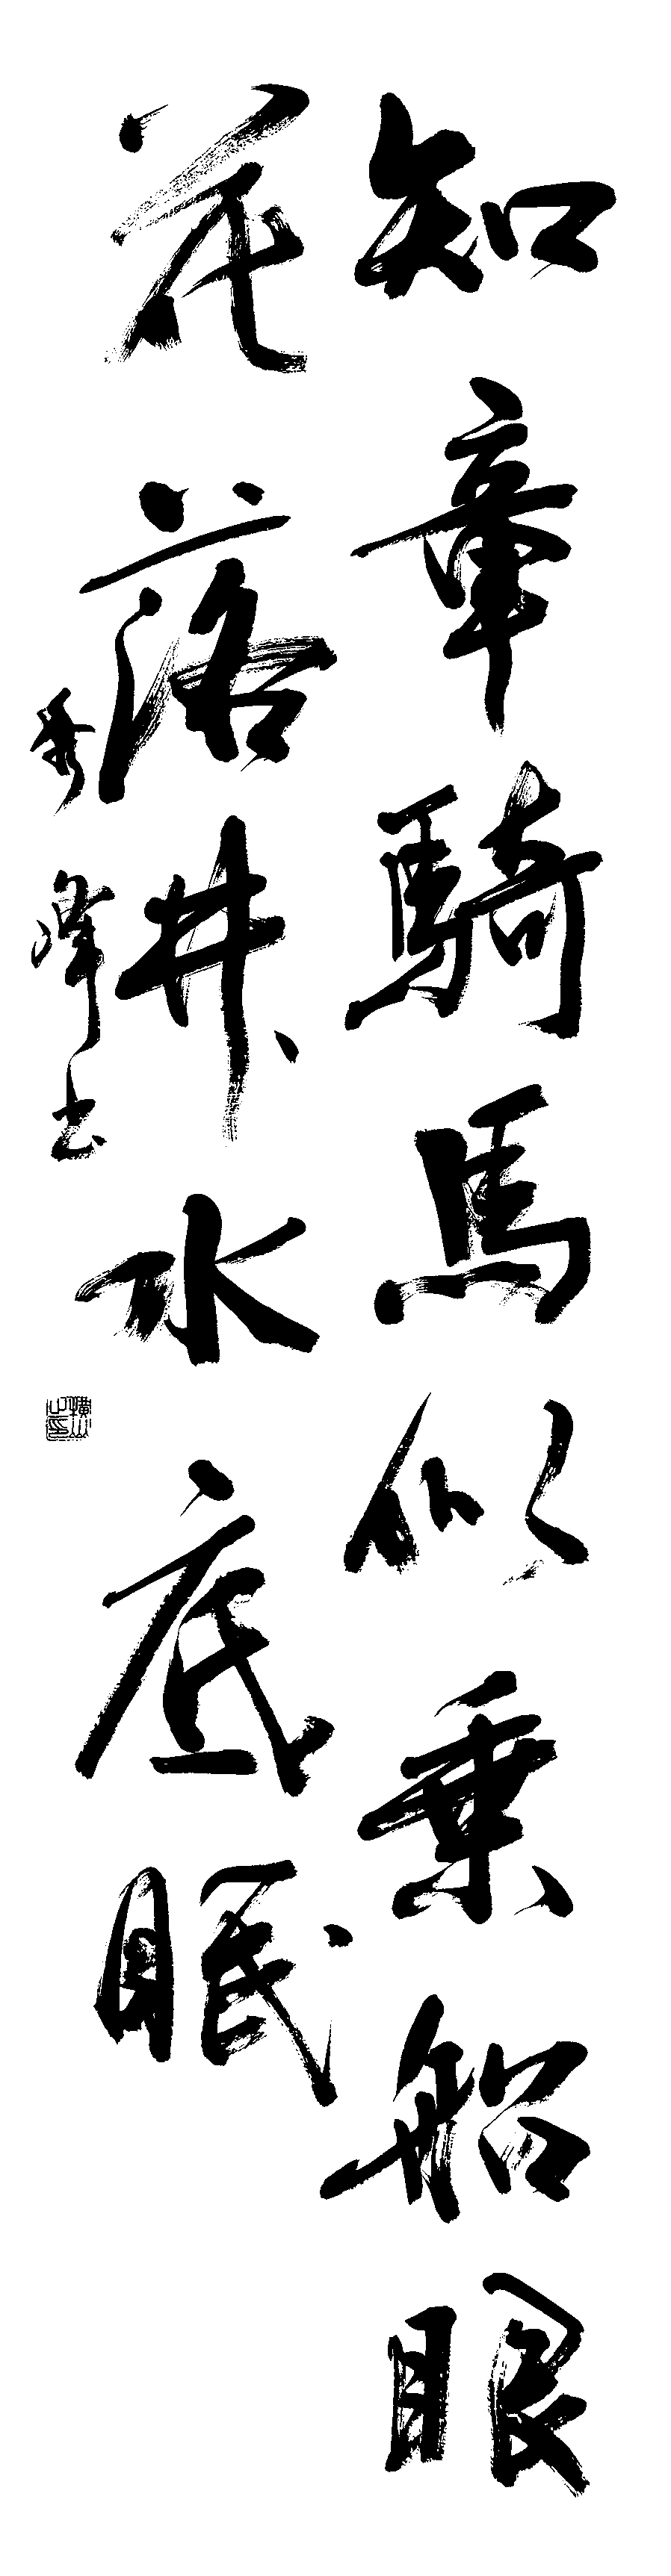 知章騎馬似乗船眼
花落井水底眠
秀峰書